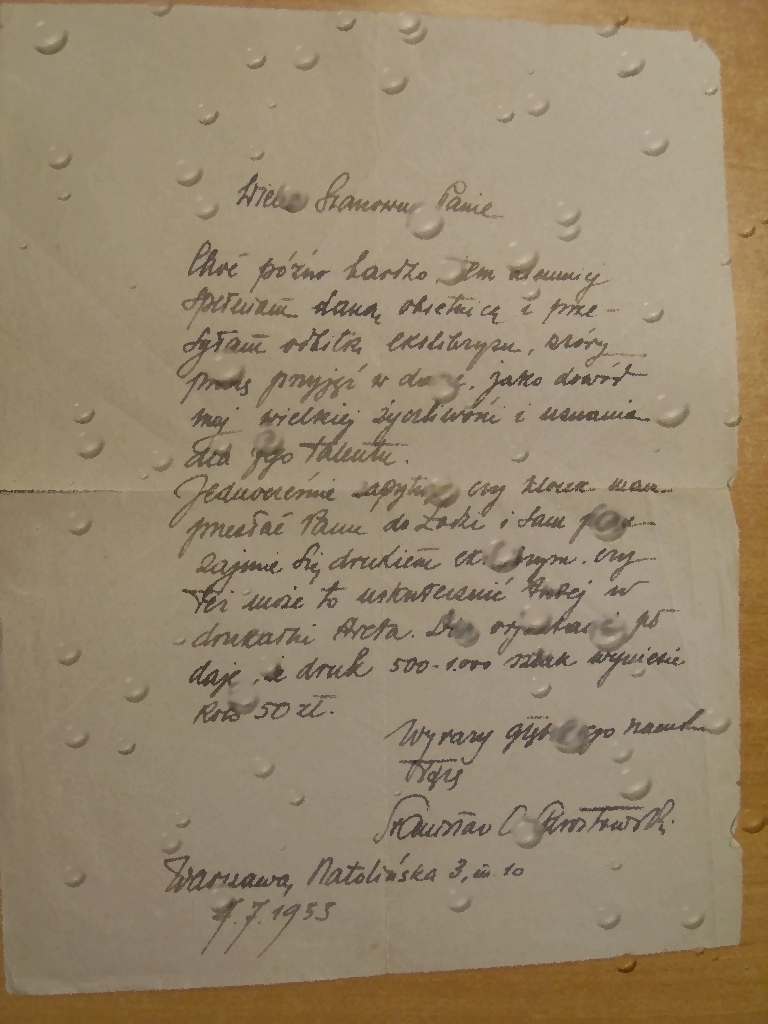 Wielce Szanowny Panie
Choć późno bardzo, tem niemniej
spełniam daną obietnicę i prze-
syłam odbitkę ekslibrysu, który
proszę przyjąć w darze, jako dowód
mej wielkiej życzliwości i uznania
dla Jego talentu.
Jednocześnie zapytuję czy klocek mam
przesłać Panu do Łodzi i sam Pan
zajmie się drukiem ekslibrysu, czy
też może to uskutecznić tutaj w
drukarni Arcta. Dla orjentacji po
daję, że druk 500-1.000 sztuk wyniesie
koło 50 zł.
Wyrazy głębokiego szacunku
łączę
Stanisław O. Chrostowski
Warszawa, Natolińska 3, m. 10
4.7.1933